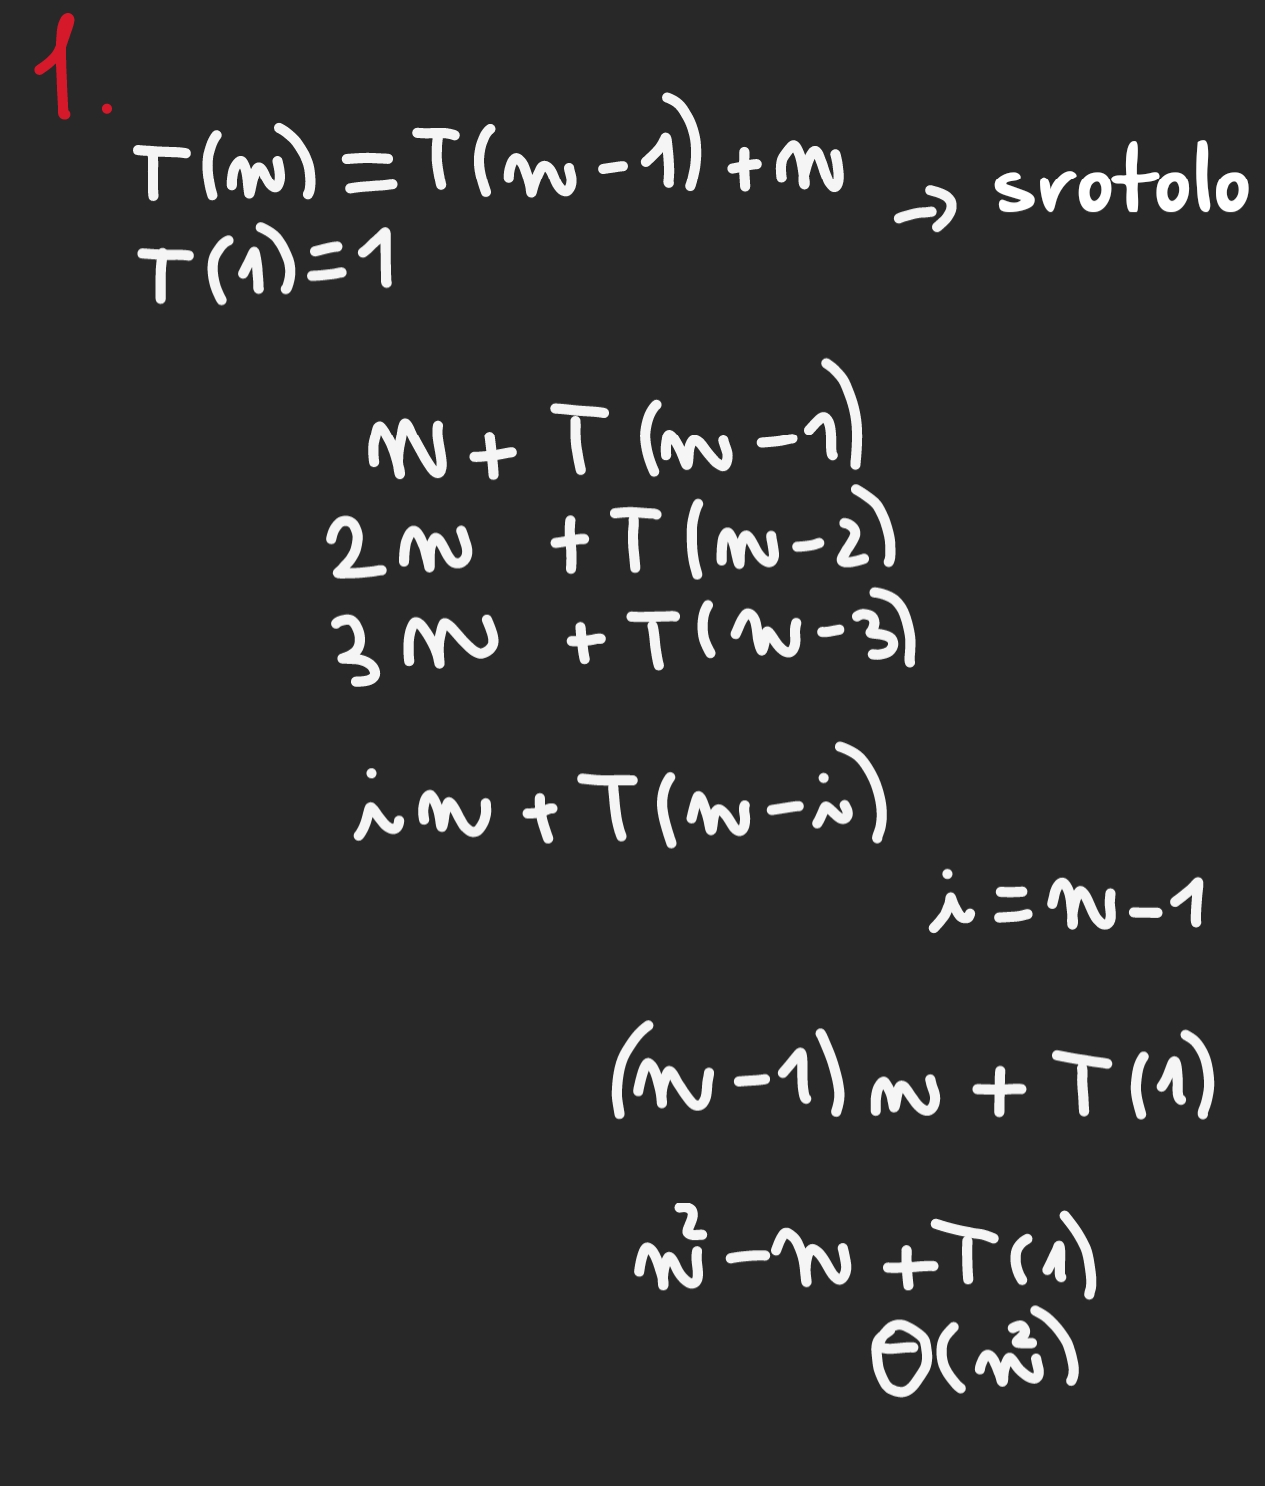 1.
T(n) = T(n-1) + n → srotolo
T(1) = 1
n + T(n-1)
2n + T(n-2)
3n + T(n-3)
in + T(n-i)
i = n-1
(n-1)n + T(1)
n² - n + T(1)
Θ(n²)